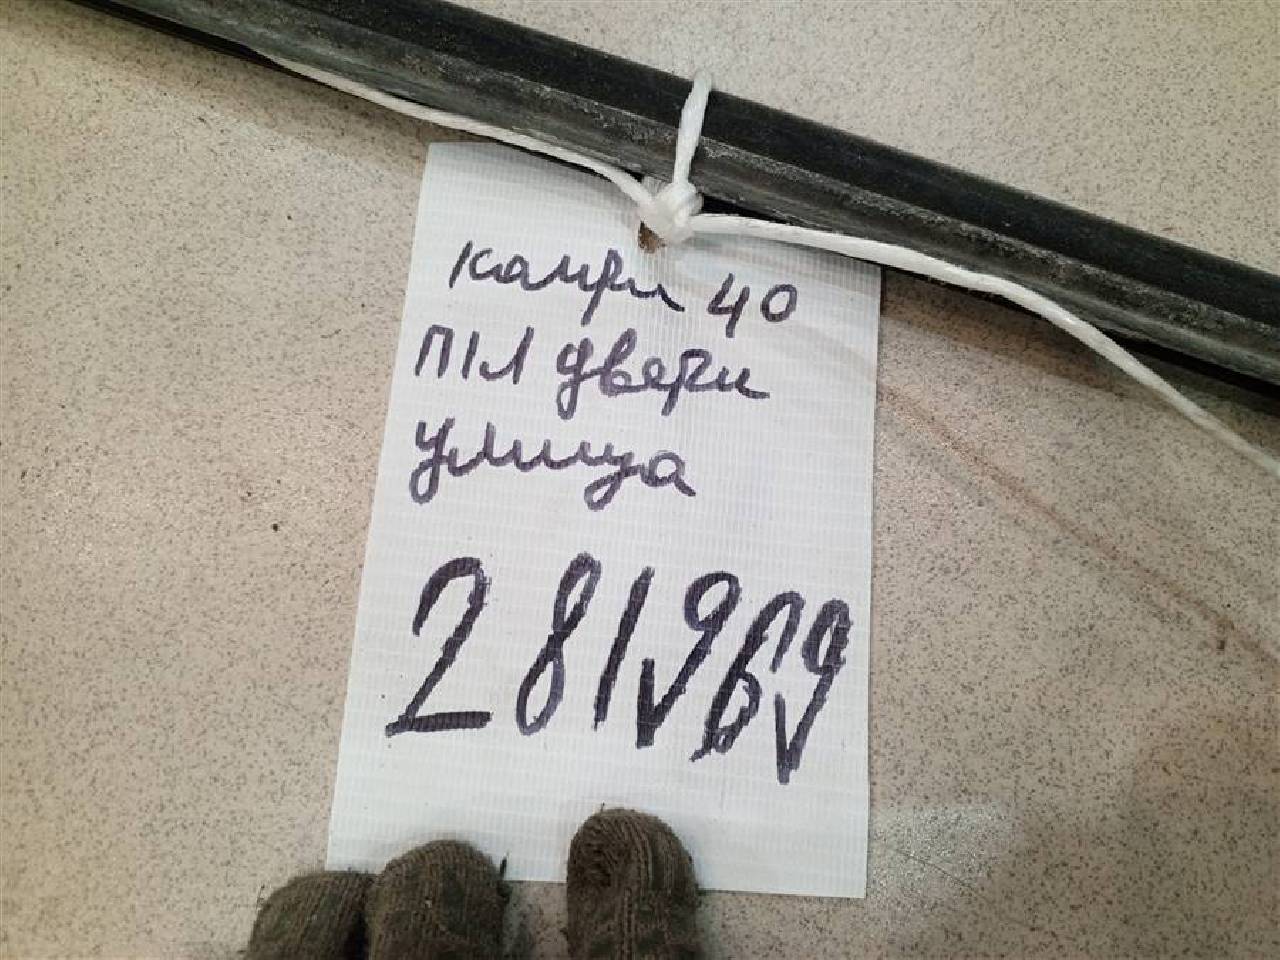 камри 40
П/Л двери
улица
281969